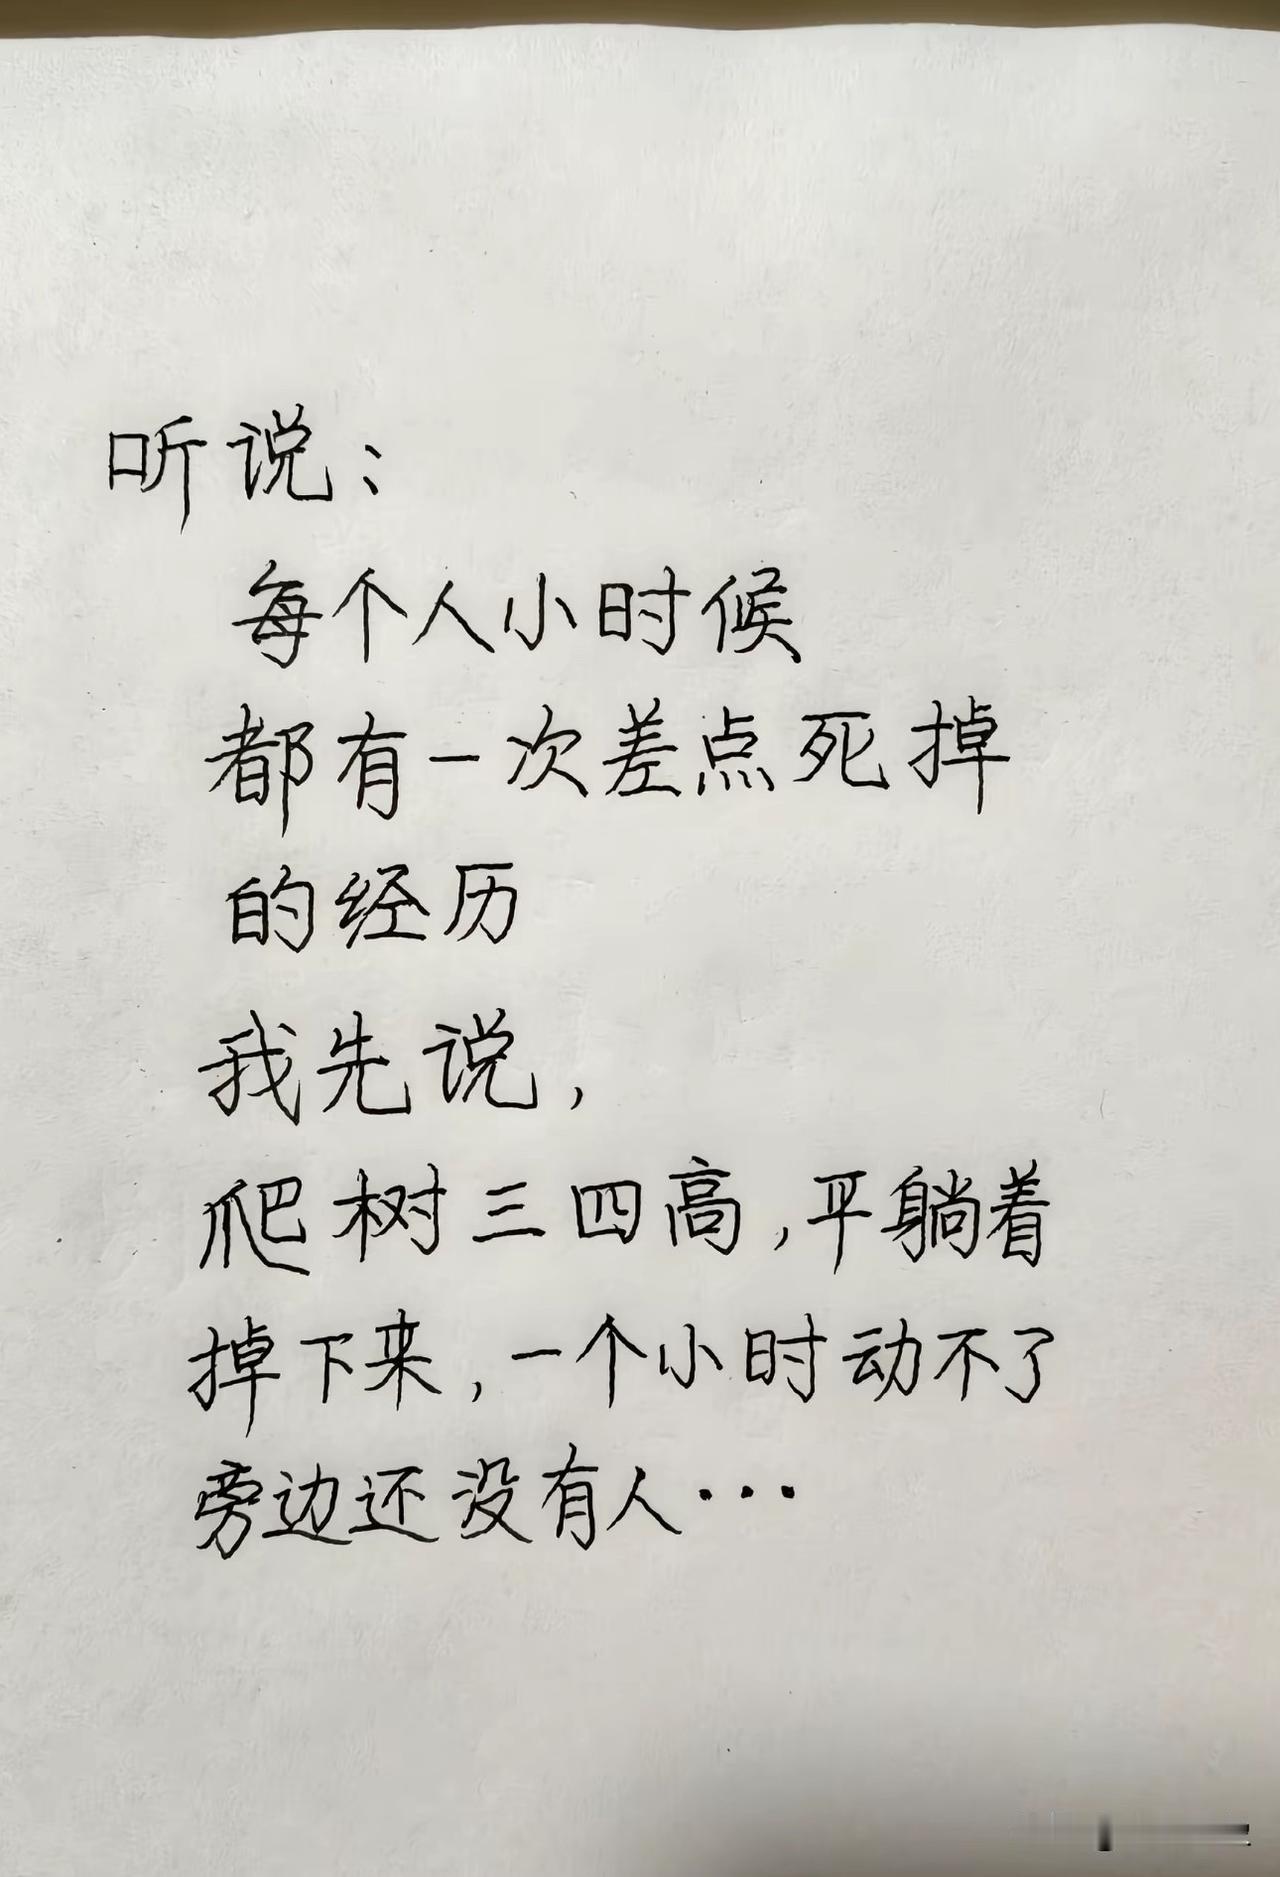 听说：
每个人小时候
都有一次差点死掉
的经历
我先说，
爬树三四高，平躺着
掉下来，一个小时动不了
旁边还没有人···